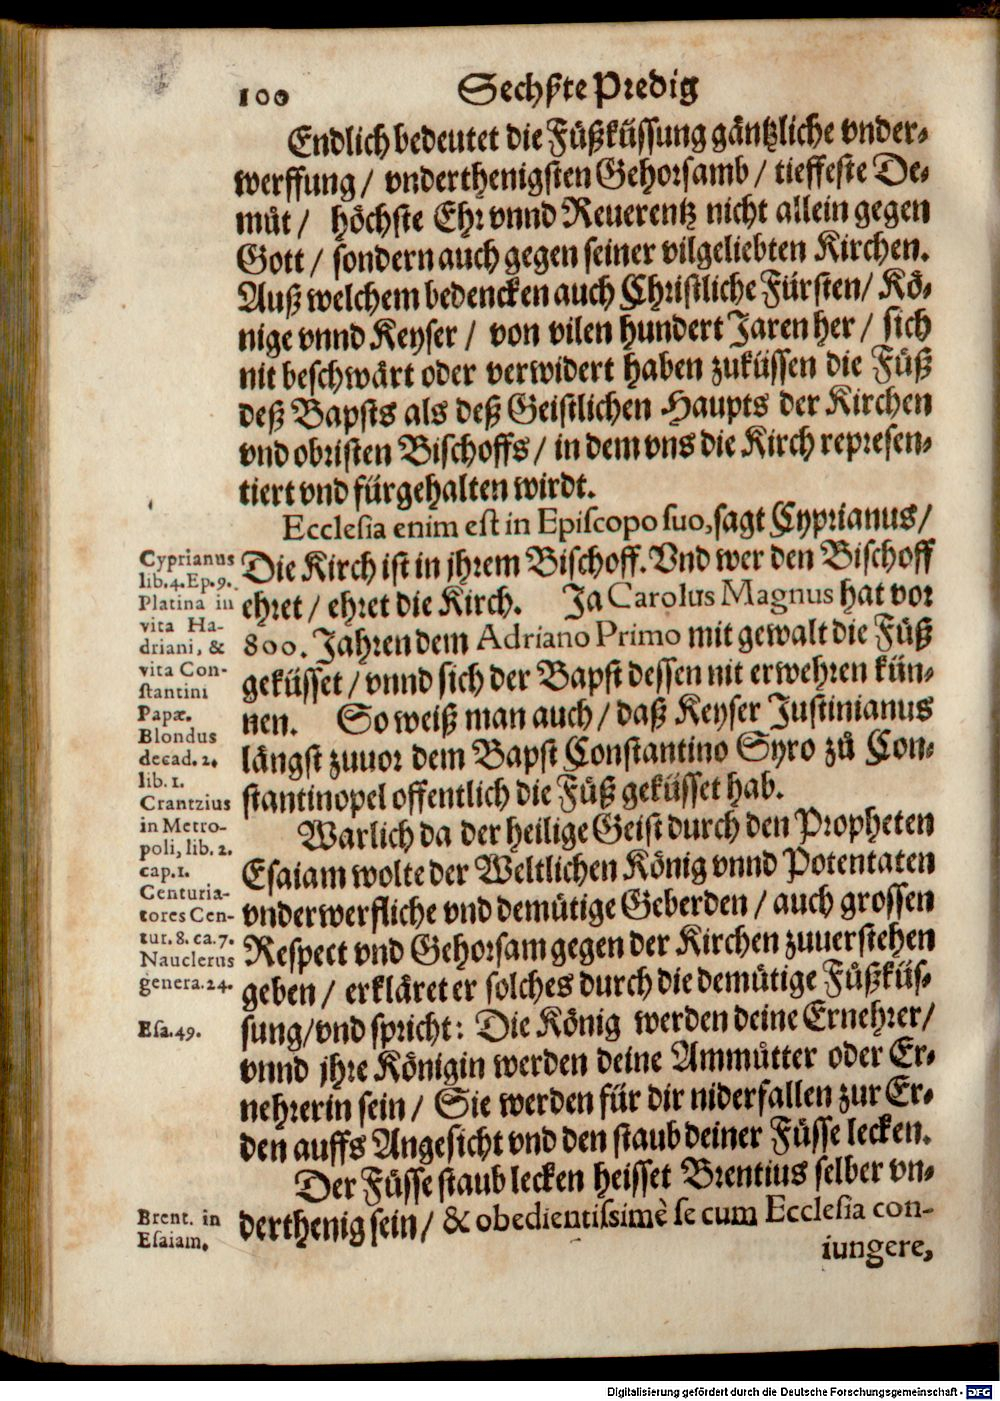 100 Sechßte Predig
Endlich bedeutet die Füßküssung gäntzliche vnder-
werffung / vnderthenigsten Gehorsamb / tieffeste De-
müt / höchste Ehr vnnd Reuerentz nicht allein gegen
Gott / sondern auch gegen seiner vilgeliebten Kirchen.
Auß welchem bedencken auch Christliche Fürsten / Kö-
nige vnnd Keyser / von vilen hundert Jaren her / sich
nit beschwärt oder verwidert haben zuküssen die Füß
deß Bapsts als deß Geistlichen Haupts der Kirchen
vnd obristen Bischoffs / in dem vns die Kirch represen-
tiert vnd fürgehalten wirdt.
Ecclesia enim est in Episcopo suo, sagt Cyprianus /
Die Kirch ist in jhrem Bischoff. Vnd wer den Bischoff
ehret / ehret die Kirch. Ja Carolus Magnus hat vor
800. Jahren dem Adriano Primo mit gewalt die Füß
geküsset / vnnd sich der Bapst dessen nit erwehren kün-
nen. So weiß man auch / daß Keyser Justinianus
längst zuuor dem Bapst Constantino Syro zů Con-
stantinopel offentlich die Füß geküsset hab.
Warlich da der heilige Geist durch den Propheten
Esaiam wolte der Weltlichen König vnnd Potentaten
vnderwerfliche vnd demütige Geberden / auch grossen
Respect vnd Gehorsam gegen der Kirchen zuuerstehen
geben / erkläret er solches durch die demütige Füßküs-
sung / vnd spricht: Die König werden deine Ernehrer /
vnnd jhre Königin werden deine Ammütter oder Er-
nehrerin sein / Sie werden für dir niderfallen zur Er-
den auffs Angesicht vnd den staub deiner Füsse lecken.
Der Füsse staub lecken heisset Brentius selber vn-
derthenig sein / & obedientissimè se cum Ecclesia con-
iungere,
Cyprianus
lib. 4. Ep. 9.
Platina in
vita Ha-
driani, &
vita Con-
stantini
Papæ.
Blondus
decad. 2.
lib. 1.
Crantzius
in Metro-
poli, lib. 2.
cap. 1.
Centuria-
tores Cen-
tur. 8. ca. 7.
Nauclerus
genera. 24.
Esa. 49.
Brent. in
Esaiam.
Digitalisierung gefördert durch die Deutsche Forschungsgemeinschaft - DFG